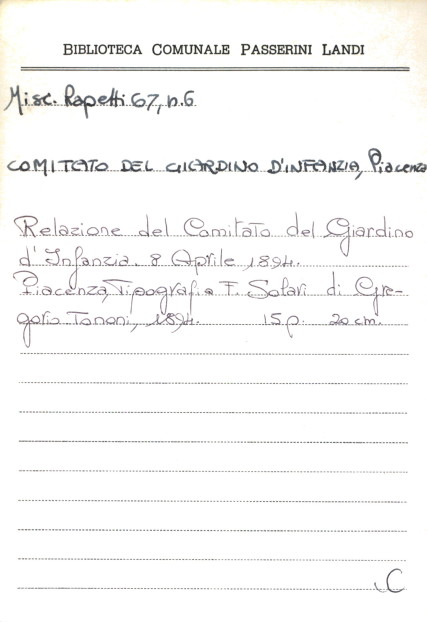 BIBLIOTECA COMUNALE PASSERINI LANDI
Misc. Rapetti 67, n. 6
COMITATO DEL GIARDINO D'INFANZIA, Piacenza
Relazione del Comitato del Giardino
d'Infanzia. 8 Aprile 1894.
Piacenza, Tipografia F. Solari di Gre-
gorio Tononi, 1894. 15 p. 20 cm.
C